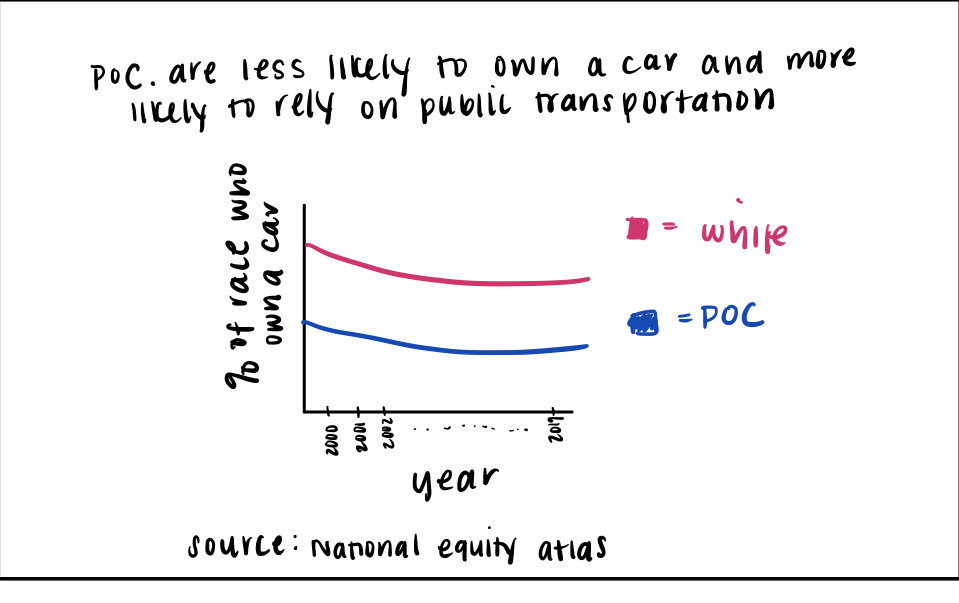 POC. are less likely to own a car and more
likely to rely on public transportation
% of race who
own a car
= white
= POC
2000
2001
2002
2019
year
source: National equity atlas